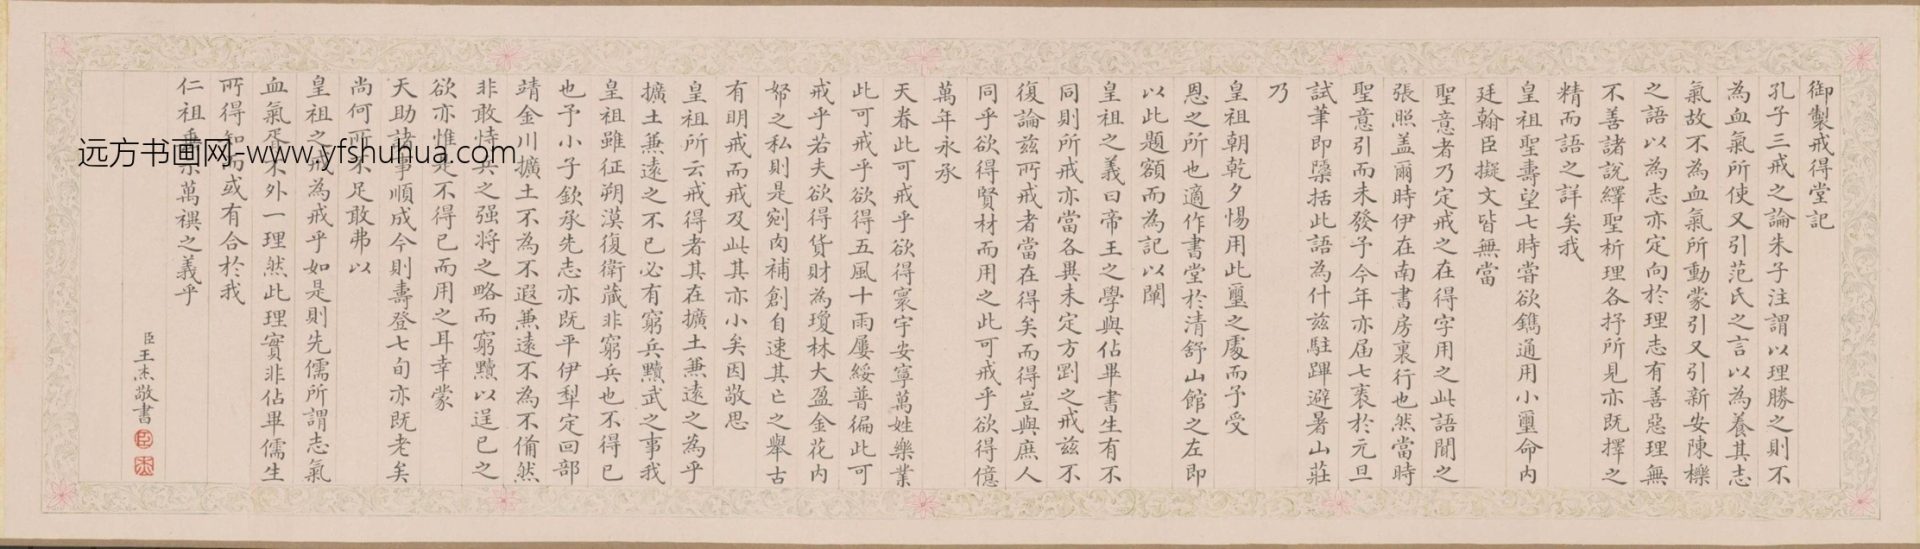 御製戒得堂記
孔子三戒之論朱子注謂以理勝之則不
為血氣所使又引范氏之言以為養其志
氣故不為血氣所動蒙引又引新安陳櫟
之語以為志亦定向於理志有善惡理無
不善諸說繹聖析理各抒所見亦既擇之
精而語之詳矣我
皇祖聖壽望七時嘗欲鐫通用小璽命內
廷翰臣擬文皆無當
聖意者乃定戒之在得字用之此語聞之
張照盖爾時伊在南書房裏行也然當時
聖意引而未發予今年亦屆七袠於元旦
試筆即檃括此語為什兹駐蹕避暑山莊
乃
皇祖朝乾夕惕用此璽之處而予受
恩之所也適作書堂於清舒山館之左即
以此題額而為記以闡
皇祖之義曰帝王之學與佔畢書生有不
同則所戒亦當各異未定方剛之戒兹不
復論兹所戒者當在得矣而得豈與庶人
同乎欲得賢材而用之此可戒乎欲得億
萬年永承
天眷此可戒乎欲得寰宇安寧萬姓樂業
此可戒乎欲得五風十雨屢綏普徧此可
戒乎若夫欲得貨財為瓊林大盈金花內
帑之私則是剜肉補創自速其亡之舉古
有明戒而戒及此其亦小矣因敬思
皇祖所云戒得者其在擴土兼遠之為乎
擴土兼遠之不已必有窮兵黷武之事我
皇祖雖征朔漠復衛藏非窮兵也不得已
也予小子欽承先志亦既平伊犁定回部
靖金川擴土不為不遐兼遠不為不備然
非敢恃兵之强将之略而窮黷以逞已之
欲亦惟是不得已而用之耳幸蒙
天助諸事順成今則壽登七旬亦既老矣
尚何所不足敢弗以
皇祖之戒為戒乎如是則先儒所謂志氣
血氣胥不外一理然此理實非佔畢儒生
所得知而或有合於我
仁祖垂樂萬禩之義乎
臣王杰敬書
臣
杰
远方书画网-www.yfshuhua.com